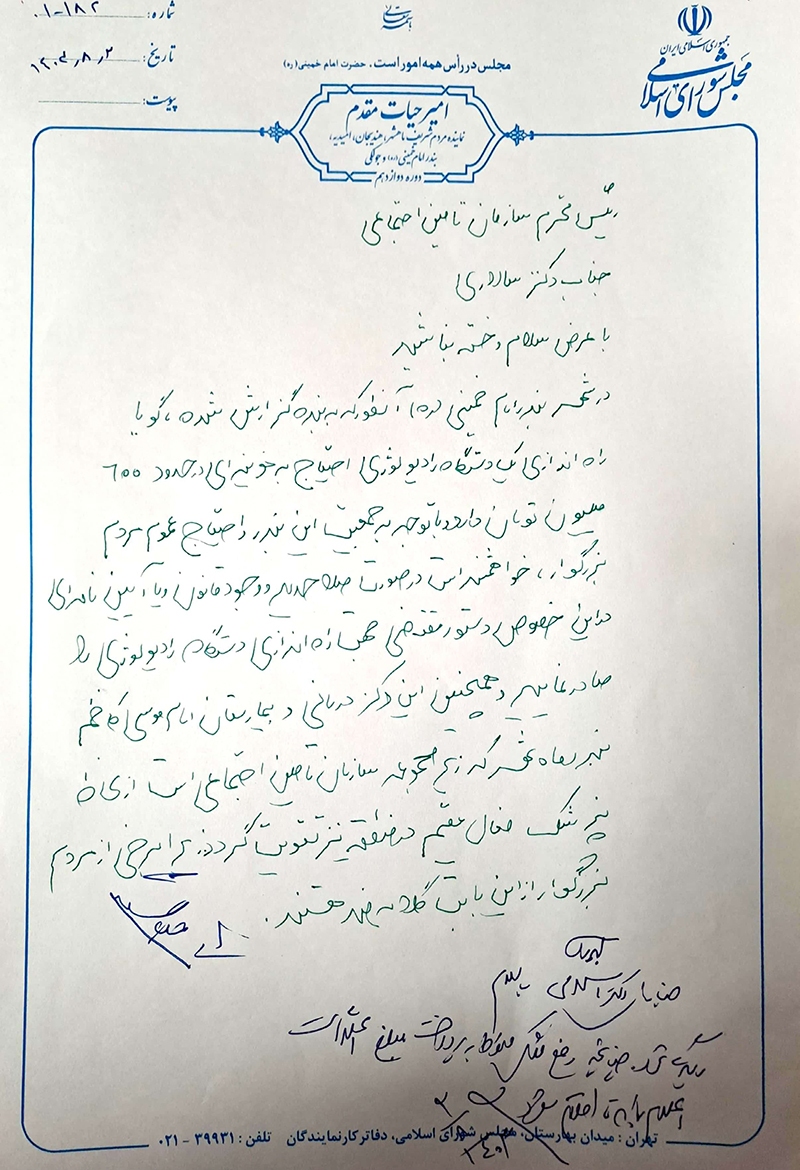 بسمه تعالی
جمهوری اسلامی ایران
مجلس شورای اسلامی
شماره: ۱۸۲-۰۱
تاریخ: ۱۴۰۳٫۸٫۲
پیوست:
مجلس در رأس همه امور است. حضرت امام خمینی (ره)
امیر حیات مقدم
نماینده مردم شریف ماهشهر، هندیجان، امیدیه،
بندر امام خمینی (ره) و جولکی
دوره دوازدهم
رئیس محترم سازمان تامین اجتماعی
جناب دکتر سالاری
با عرض سلام و خسته نباشید
در شهر بندر امام خمینی (ره) آنطور که به بنده گزارش شده، گویا
راه اندازی یک دستگاه رادیولوژی احتیاج به هزینه‌ای در حدود ۶۰۰
میلیون تومان دارد با توجه به جمعیت این بندر و احتیاج عموم مردم
بزرگوار، خواهشمند است در صورت صلاحدید و وجود قانون و یا آیین نامه‌ای
در این خصوص دستور مقتضی جهت راه اندازی دستگاه رادیولوژی را
صادر نمایید و همچنین این مرکز درمانی و بیمارستان امام موسی کاظم
بندر ماهشهر که زیر مجموعه سازمان تامین اجتماعی است از لحاظ
پزشک فعال مقیم در منطقه نیز تقویت گردد زیرا برخی از مردم
بزرگوار از این بابت گلایه مند هستند.
جناب دکتر اسلامی
رفع مشکل منوط به پرداخت مبلغ
اقدام شود
تهران: میدان بهارستان، مجلس شورای اسلامی، دفاتر کار نمایندگان تلفن: ۳۹۹۳۱ - ۰۲۱